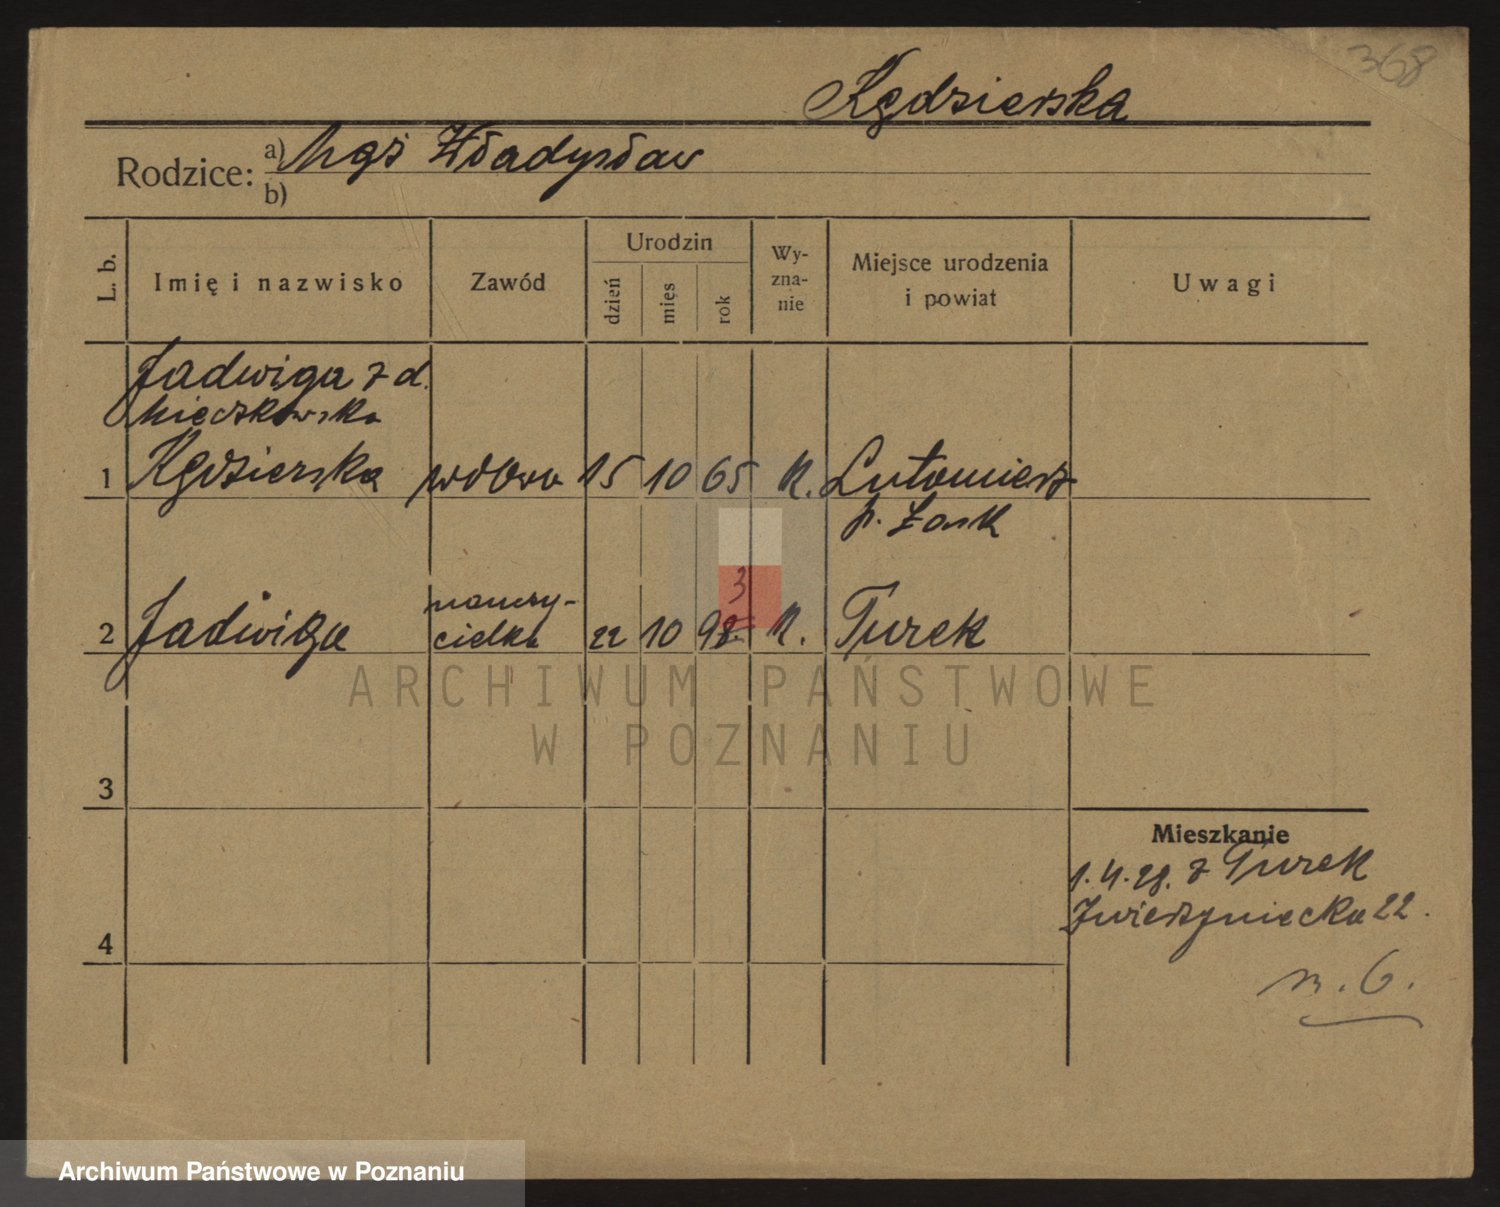 368
Kędzierska
Rodzice: a) Mąż Władysław
b)
L. b.
Imię i nazwisko
Zawód
Urodzin
dzień
mies
rok
Wy-
zna-
nie
Miejsce urodzenia
i powiat
Uwagi
Jadwiga z d.
Mieczkowska
1 Kędzierska wdowa 15 10 65 K. Lutomiersk
p. Łask
3
2 Jadwiga nauczy-
cielka 22 10 98 K. Turek
3
4
Mieszkanie
1.4.29. z Turek
Zwierzyniecka 22.
m. 6.
ARCHIWUM PAŃSTWOWE
W POZNANIU
Archiwum Państwowe w Poznaniu